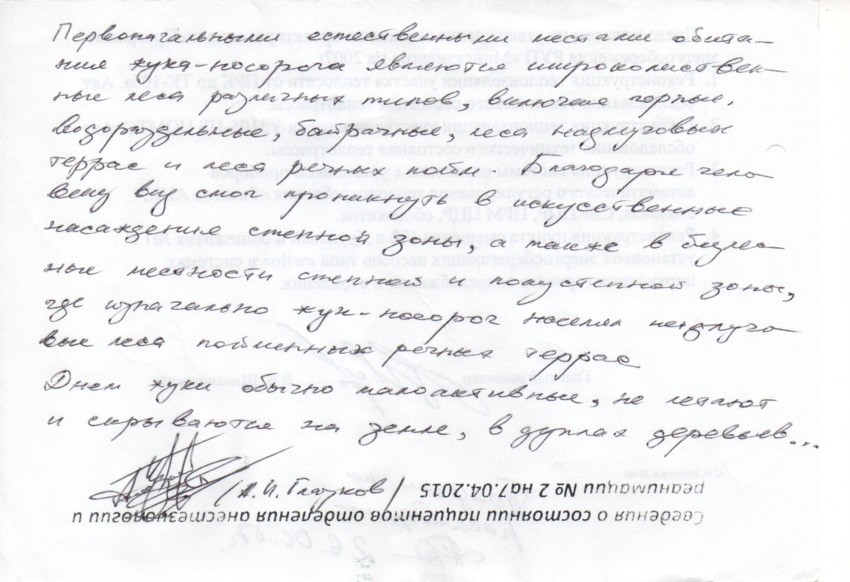 Первоначальными естественными местами обита-
ния жука-носорога являются широколиствен-
ные леса различных типов, включая горные,
водораздельные, байрачные, леса надлуговых
террас и леса речных пойм. Благодаря чело
веку вид смог проникнуть в искусственные
насаждения степной зоны, а также в безлес
ные местности степной и полустепной зоны,
где изначально жук-носорог населял
вые леса пойменных речных террас
Днем жуки обычно малоактивные, не летают
и скрываются на земле, в дуплах деревьев...
/А.И. Глазков/
Сведения о состоянии пациентов отделения анестезиологии и
реанимации № 2 на 7.04.2015